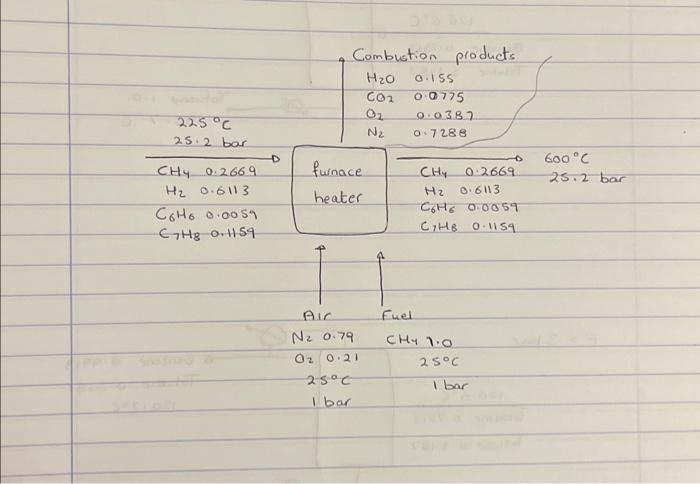 Combustion products
H2O 0.155
CO2 0.0775
O2 0.0387
N2 0.7288
225 °C
25.2 bar
CH4 0.2669
H2 0.6113
C6H6 0.0059
C7H8 0.1159
furnace
heater
CH4 0.2669
H2 0.6113
C6H6 0.0059
C7H8 0.1159
600°C
25.2 bar
Air
N2 0.79
O2 0.21
25°C
1 bar
Fuel
CH4 1.0
25°C
1 bar